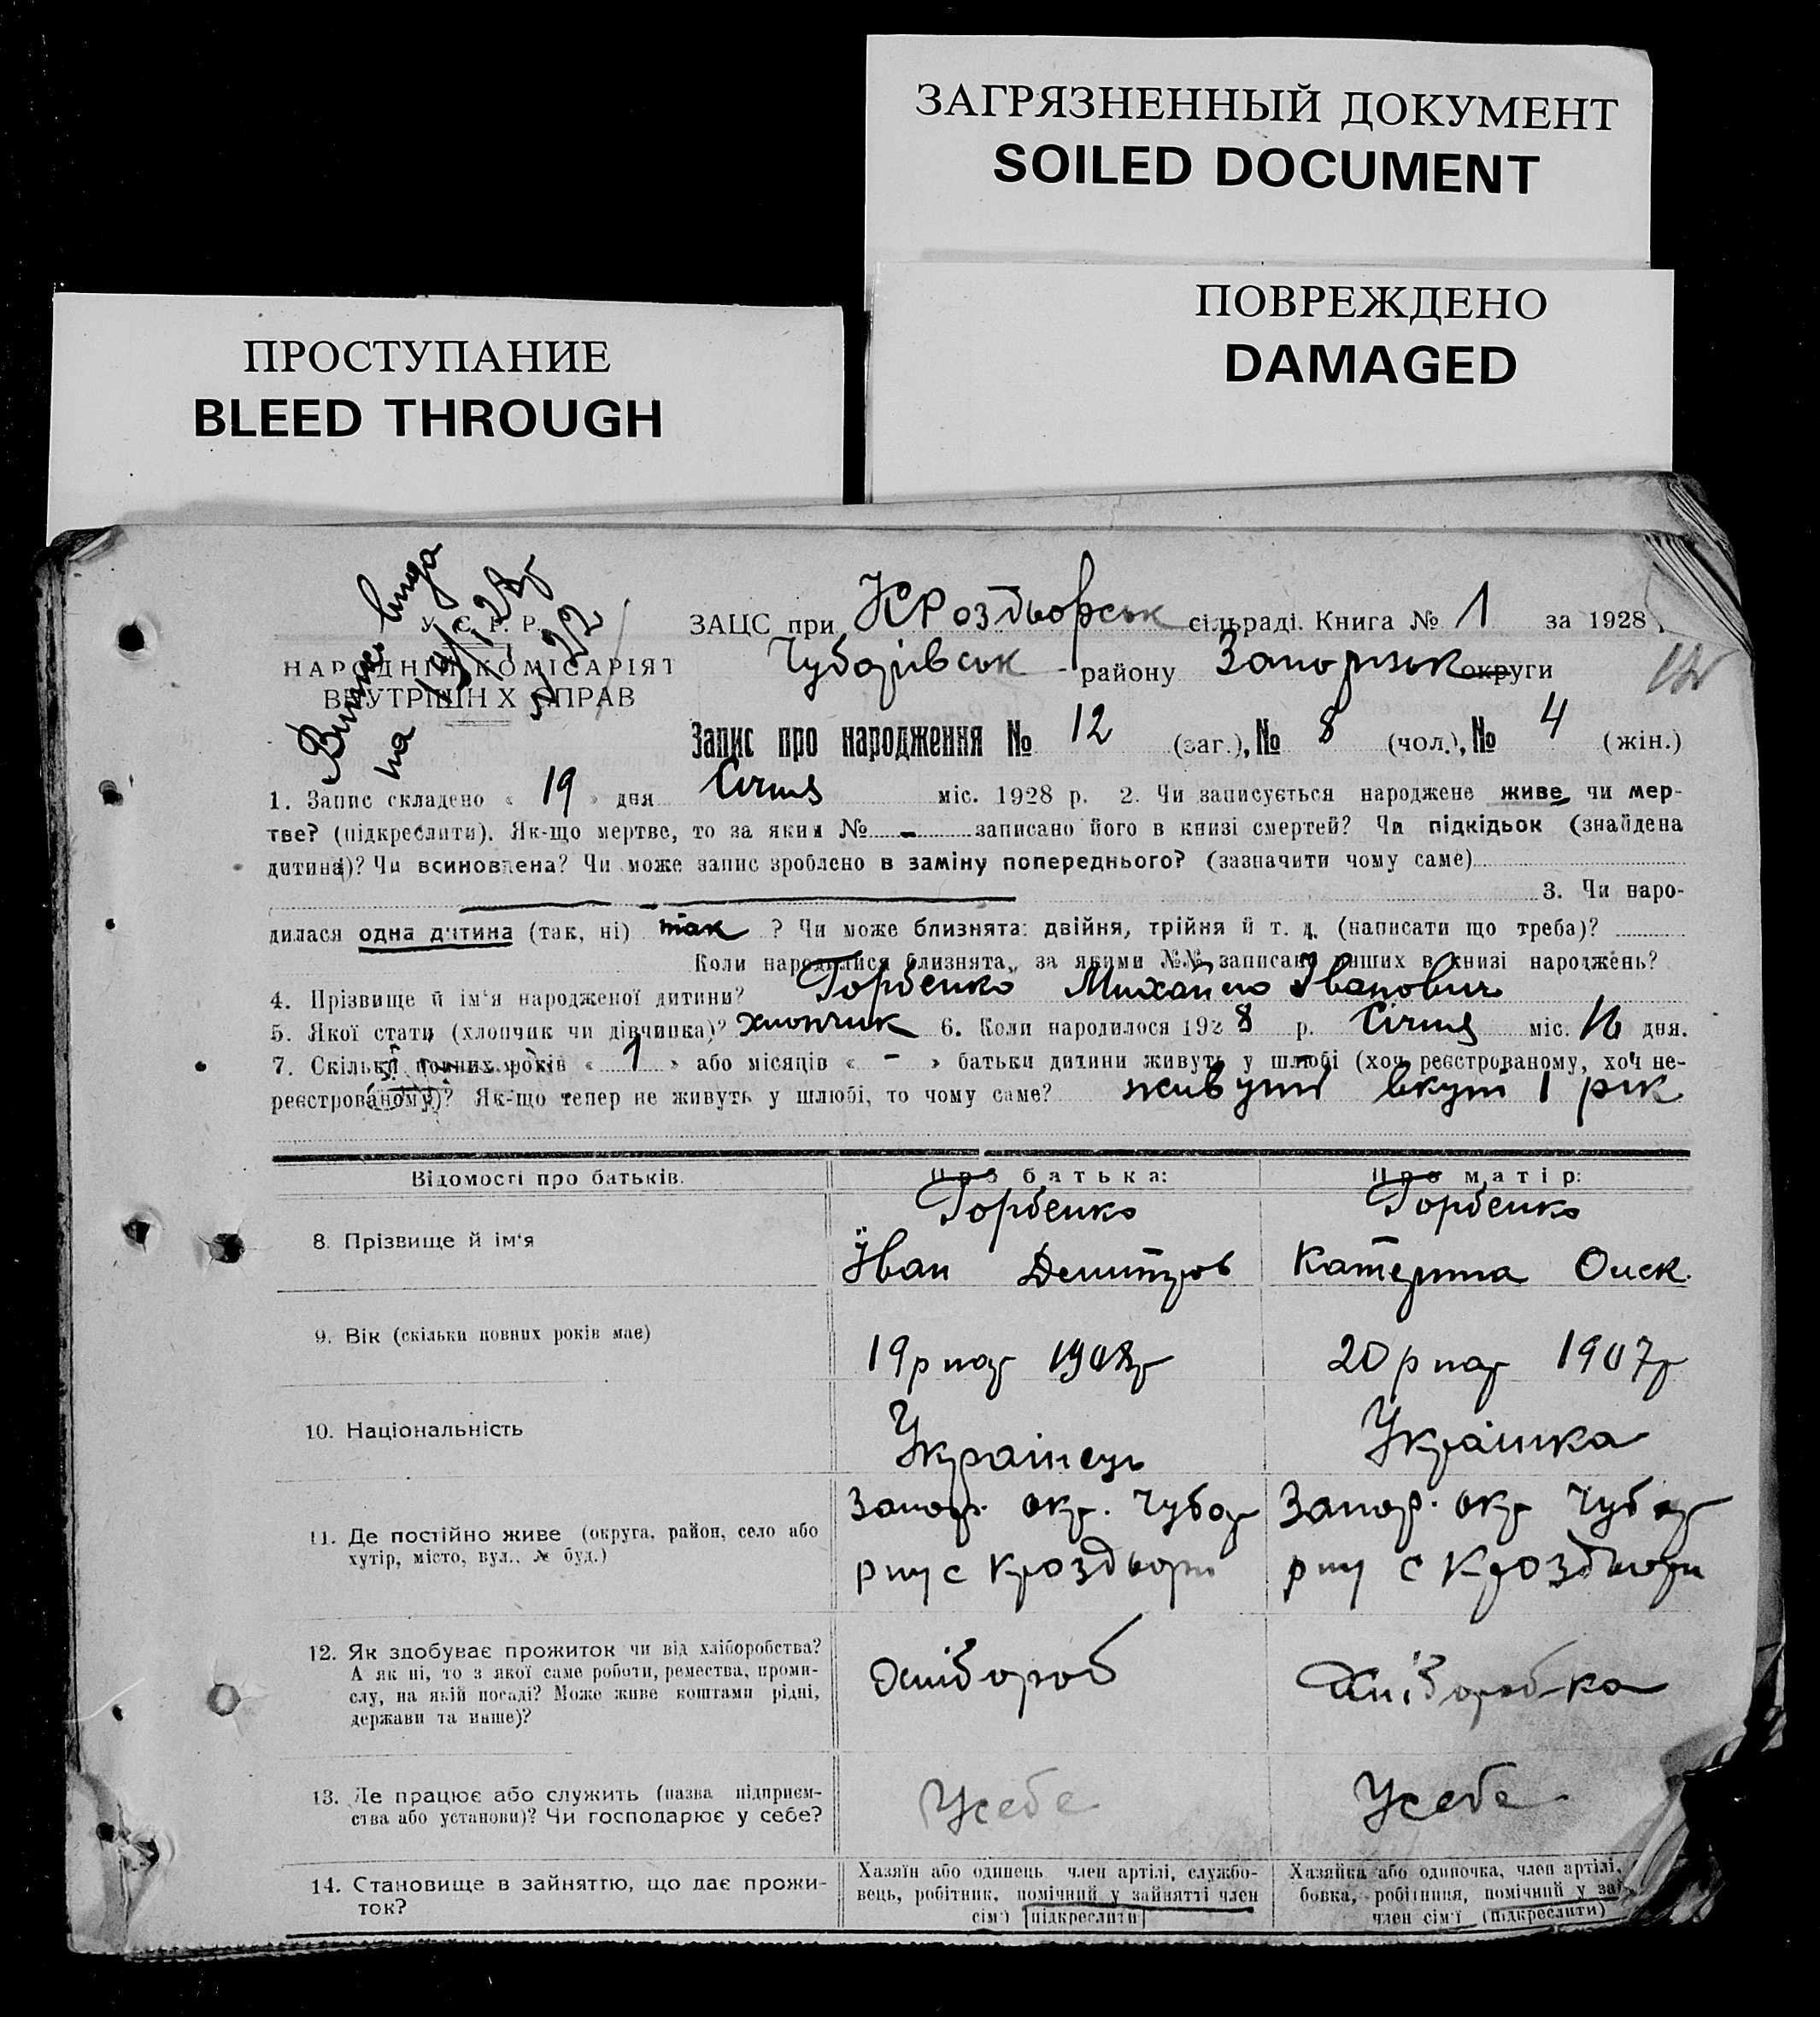 ЗАГРЯЗНЕННЫЙ ДОКУМЕНТ
SOILED DOCUMENT
ПОВРЕЖДЕНО
DAMAGED
ПРОСТУПАНИЕ
BLEED THROUGH
У. С. Р. Р.
НАРОДНІЙ КОМІСАРІЯТ
ВНУТРІШН Х СПРАВ
ЗАЦС при КРоздьорськ сільраді. Книга № 1 за 1928
Чубарівськ району Запорізьк округи
Запис про народження № 12 (заг.), № 8 (чол.), № 4 (жін.)
1. Запис складено « 19 » дня Січня міс. 1928 р. 2. Чи записується народжене живе чи мер-
тве? (підкреслити). Як-що мертве, то за яким № - записано його в книзі смертей? Чи підкідьок (знайдена
дитина)? Чи всиновлена? Чи може запис зроблено в заміну попереднього? (зазначити чому саме)
3. Чи наро-
дилася одна дитина (так, ні) так ? Чи може близнята: двійня, трійня й т. д. (написати що треба)?
Коли народилися близнята, за якими №№ записано инших в книзі народжень?
4. Прізвище й ім'я народженої дитини? Горбенко Михайло Іванович
5. Якої стати (хлопчик чи дівчинка)? хлопчик 6. Коли народилося 1928 р. Січня міс. 16 дня.
7. Скільки повних років « 1 » або місяців « - » батьки дитини живуть у шлюбі (хоч реєстрованому, хоч не-
реєстрованому)? Як-що тепер не живуть у шлюбі, то чому саме? живуть вкупі 1 рік
Відомості про батьків. Про батька: Про матір:
Горбенко Горбенко
8. Прізвище й ім'я Іван Демитров Катерина Оиск.
9. Вік (скільки повних років має) 19 р нар 1908 р 20 р нар 1907 р
10. Національність Українець Українка
11. Де постійно живе (округа, район, село або Запор. окр. Чубар Запор. окр Чубар
хутір, місто, вул., № буд.) рну с Кроздьори рну с Кроздьори
12. Як здобуває прожиток чи від хліборобства? Хлібороб Хліборобка
А як ні, то з якої саме роботи, ремества, проми-
слу, на якій посаді? Може живе коштами рідні,
держави та инше)?
13. Де працює або служить (назва підприєм- Усебе Усебе
ства або установи)? Чи господарює у себе?
14. Становище в зайняттю, що дає прожи-
ток?
Хазяїн або одинець член артілі, службо-
вець, робітник, помічний у зайнятті член
сім'ї (підкреслити)
Хазяйка або одиночка, член артілі,
бовка, робітниця, помічний у зай
член сім'ї (підкреслити)